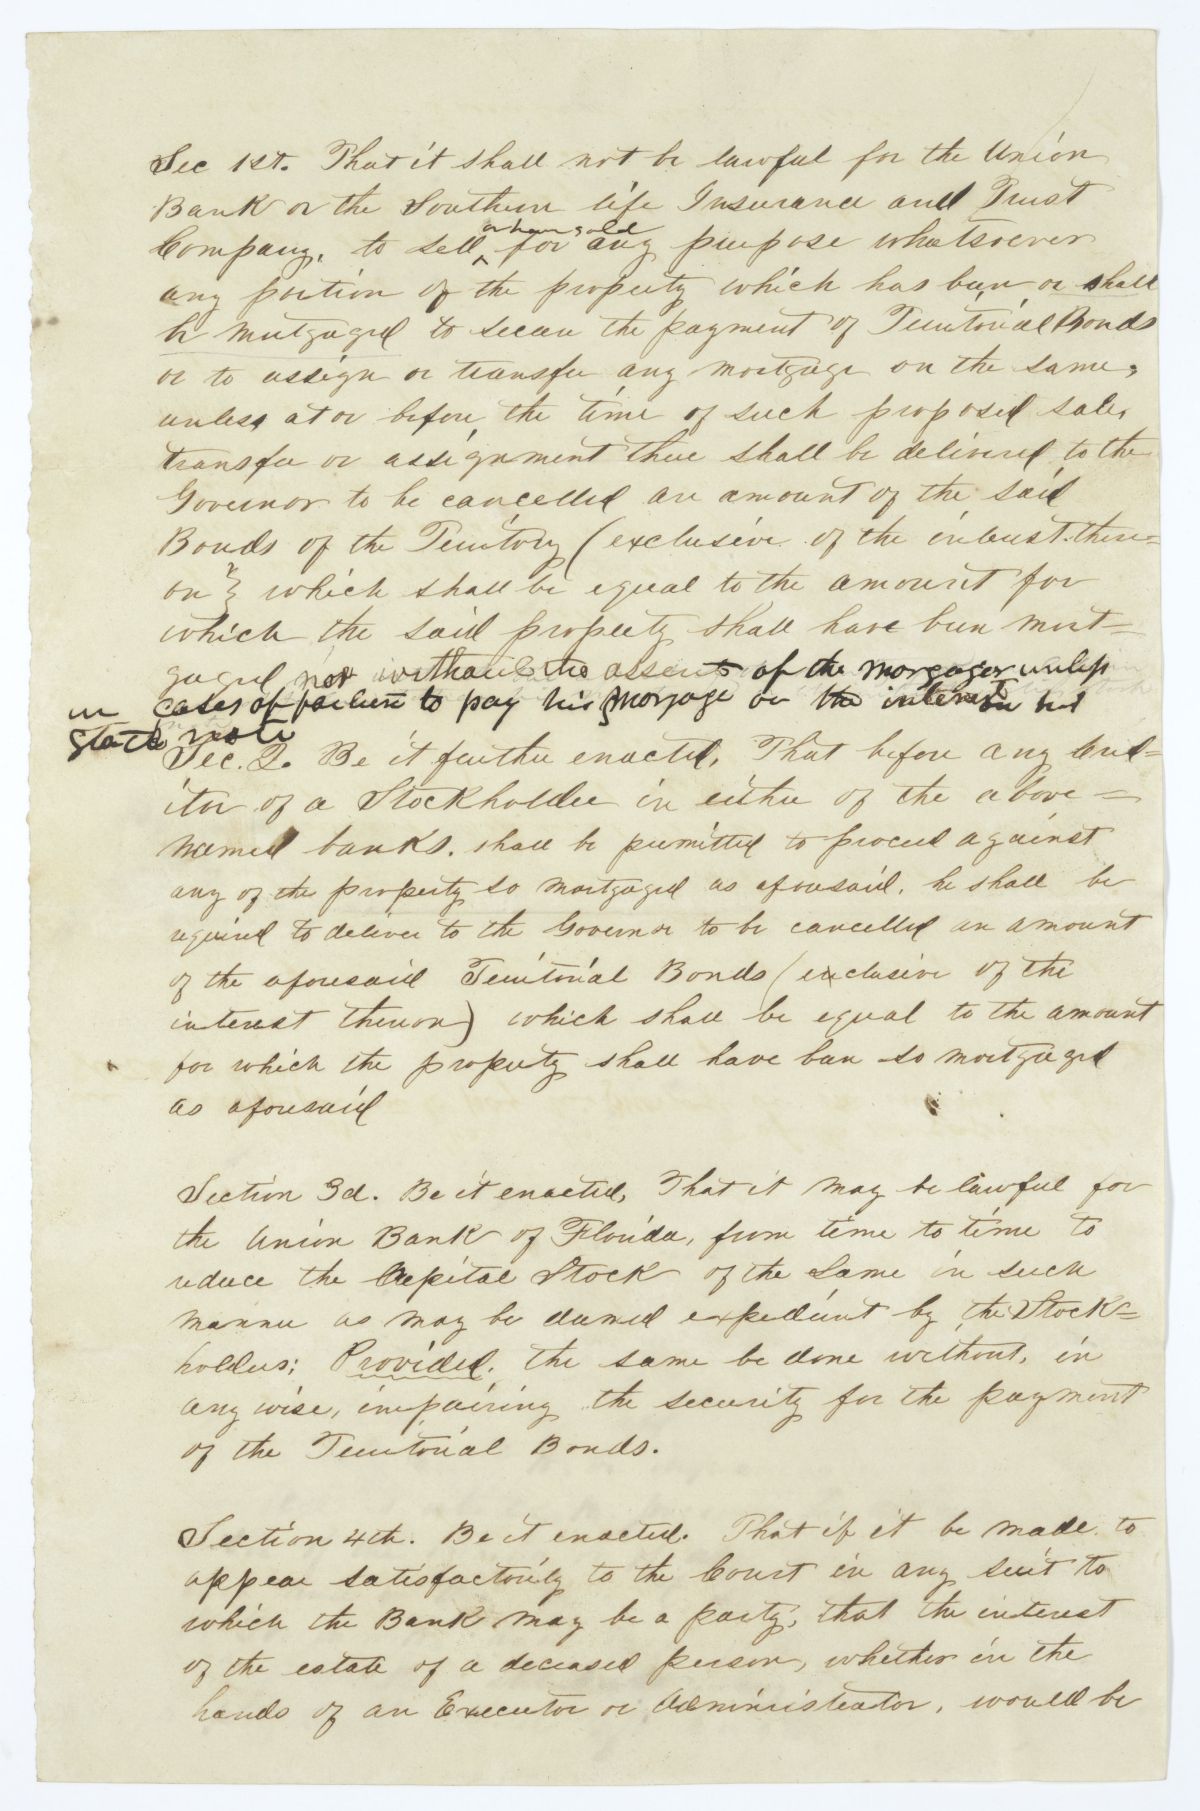 Sec 1st. That it shall not be lawful for the Union
Bank or the Southern life Insurance and Trust
or have sold
Company, to sell ^ for any purpose whatsoever
any portion of the property which has been or shall
be mortgaged to secure the payment of Territorial Bonds
or to assign or transfer any mortgage on the same,
unless at or before, the time of such proposed sale,
transfer or assignment there shall be delivered to the
Governor to be cancelled an amount of the said
Bonds of the Territory (exclusive of the interest there=
on) which shall be equal to the amount for
which the said property shall have been mort=
gaged nor without the assent of the morgager unless
in cases of failure to pay his morgage or the interest on his
stock note
Sec. 2. Be it further enacted, That before any Cred=
itor of a Stockholder in either of the above=
named banks. shall be permitted to proceed against
any of the property so mortgaged as aforesaid, he shall be
required to deliver to the Governor to be cancelled an amount
of the aforesaid Territorial Bonds (exclusive of the
interest thereon) which shall be equal to the amount
for which the property shall have been so mortgaged
as aforesaid
Section 3d. Be it enacted, That it may be lawful for
the Union Bank of Florida, from time to time to
reduce the Capital Stock of the same in such
manner as may be deemed expedient by the Stock=
holders; Provided, the same be done without, in
any wise, impairing the security for the payment
of the Territorial Bonds.
Section 4th. Be it enacted. That if it be made to
appear satisfactorily to the Court in any suit to
which the Bank may be a party, that the interest
of the estate of a deceased person, whether in the
hands of an Executor or Administrator, would be